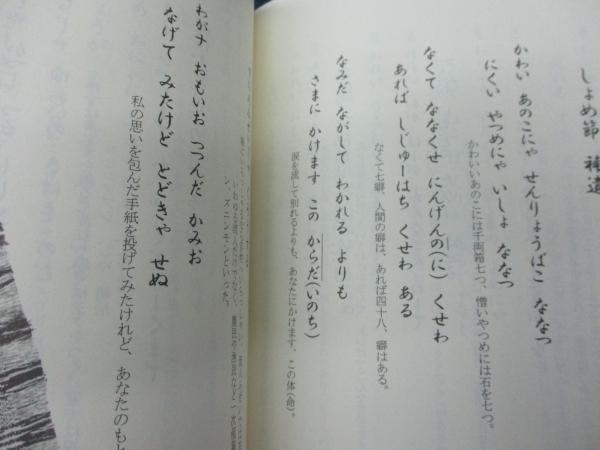 しょめ節 補遺
かわい あのこにゃ せんりょうばこ ななつ
にくい やつめにゃ いしょ ななつ
かわいいあのこには千両箱七つ、憎いやつめには石を七つ。
なくて ななくせ にんげんの(に) くせわ
あれば しじゅーはち くせわ ある
なくて七癖、人間の癖は、あれば四十八、癖はある。
なみだ ながして わかれる よりも
さまに かけます この からだ(いのち)
涙を流して別れるよりも、あなたにかけます、この体(命)。
わがナ おもいお つつんだ かみお
なげて みたけど とどきゃ せぬ
私の思いを包んだ手紙を投げてみたけれど、あなたのも